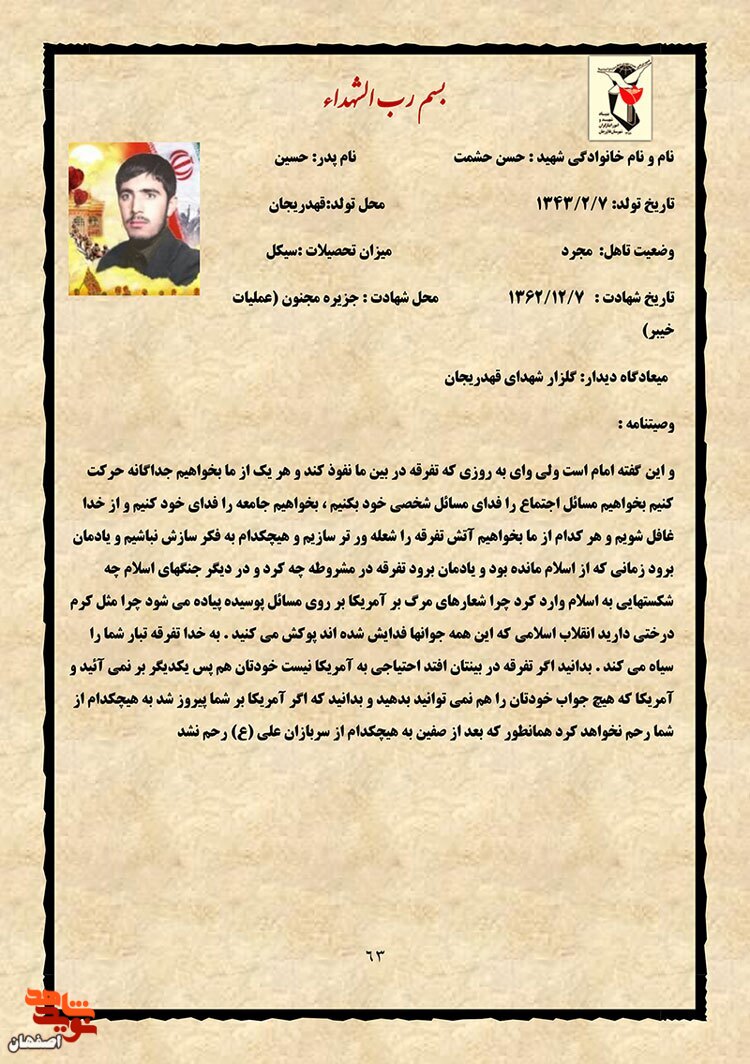 بسم رب الشهداء
نام و نام خانوادگی شهید : حسن حشمت نام پدر: حسین
تاریخ تولد: ۱۳۴۳/۲/۷ محل تولد:قهدریجان
وضعیت تاهل: مجرد میزان تحصیلات :سیکل
تاریخ شهادت : ۱۳۶۲/۱۲/۷ محل شهادت : جزیره مجنون (عملیات
خیبر)
میعادگاه دیدار: گلزار شهدای قهدریجان
وصیتنامه :
و این گفته امام است ولی وای به روزی که تفرقه در بین ما نفوذ کند و هر یک از ما بخواهیم جداگانه حرکت
کنیم بخواهیم مسائل اجتماع را فدای مسائل شخصی خود بکنیم ، بخواهیم جامعه را فدای خود کنیم و از خدا
غافل شویم و هر کدام از ما بخواهیم آتش تفرقه را شعله ور تر سازیم و هیچکدام به فکر سازش نباشیم و یادمان
برود زمانی که از اسلام مانده بود و یادمان برود تفرقه در مشروطه چه کرد و در دیگر جنگهای اسلام چه
شکستهایی به اسلام وارد کرد چرا شعارهای مرگ بر آمریکا بر روی مسائل پوسیده پیاده می شود چرا مثل کرم
درختی دارید انقلاب اسلامی که این همه جوانها فدایش شده اند پوکش می کنید . به خدا تفرقه تبار شما را
سیاه می کند . بدانید اگر تفرقه در بینتان افتد احتیاجی به آمریکا نیست خودتان هم پس یکدیگر بر نمی آئید و
آمریکا که هیچ جواب خودتان را هم نمی توانید بدهید و بدانید که اگر آمریکا بر شما پیروز شد به هیچکدام از
شما رحم نخواهد کرد همانطور که بعد از صفین به هیچکدام از سربازان علی (ع) رحم نشد
۶۳
نوید شاهد
اصفهان